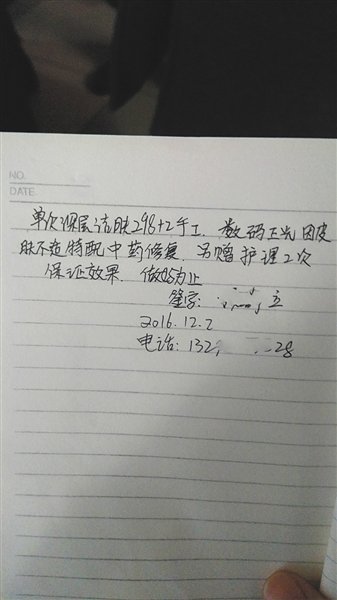 NO.
DATE.
单次深层洁肤298+2手工. 数码王光 因皮
肤不适特配中药修复. 另赠护理2次
保证效果. 做好为止
签字: 立
2016.12.2
电话: 132 28